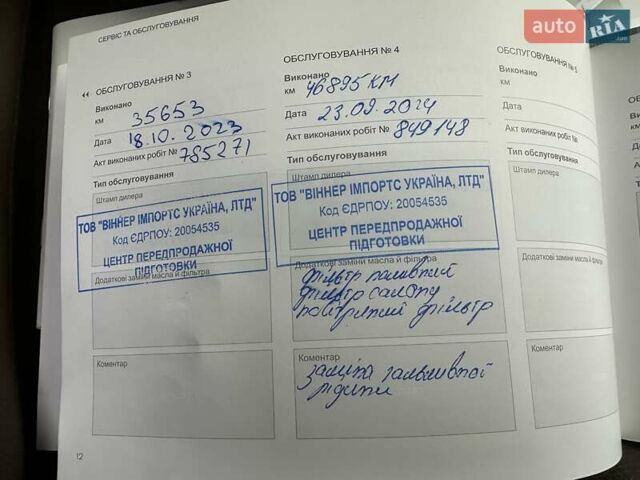 СЕРВІС ТА ОБСЛУГОВУВАННЯ
auto RIA .com
ОБСЛУГОВУВАННЯ № 3
Виконано
км 35653
Дата 18.10.2023
Акт виконаних робіт № 785271
Тип обслуговування
Штамп дилера
ТОВ "ВІННЕР ІМПОРТС УКРАЇНА, ЛТД"
Код ЄДРПОУ: 20054535
ЦЕНТР ПЕРЕДПРОДАЖНОЇ
ПІДГОТОВКИ
Додаткові заміни масла й фільтра
Коментар
12
ОБСЛУГОВУВАННЯ № 4
Виконано
км 46895 КМ
Дата 23.09.2024
Акт виконаних робіт № 849148
Тип обслуговування
Штамп дилера
ТОВ "ВІННЕР ІМПОРТС УКРАЇНА, ЛТД"
Код ЄДРПОУ: 20054535
ЦЕНТР ПЕРЕДПРОДАЖНОЇ
ПІДГОТОВКИ
Додаткові заміни масла й фільтра
фільтр паливний
фільтр салону
повітряний фільтр
Коментар
заміна гальмівної
рідини
ОБСЛУГОВУВАННЯ № 5
Виконано
км
Дата
Акт виконаних робіт
Тип обслуговування
Штамп дилера
Додаткові заміни масла й фільтра
Коментар